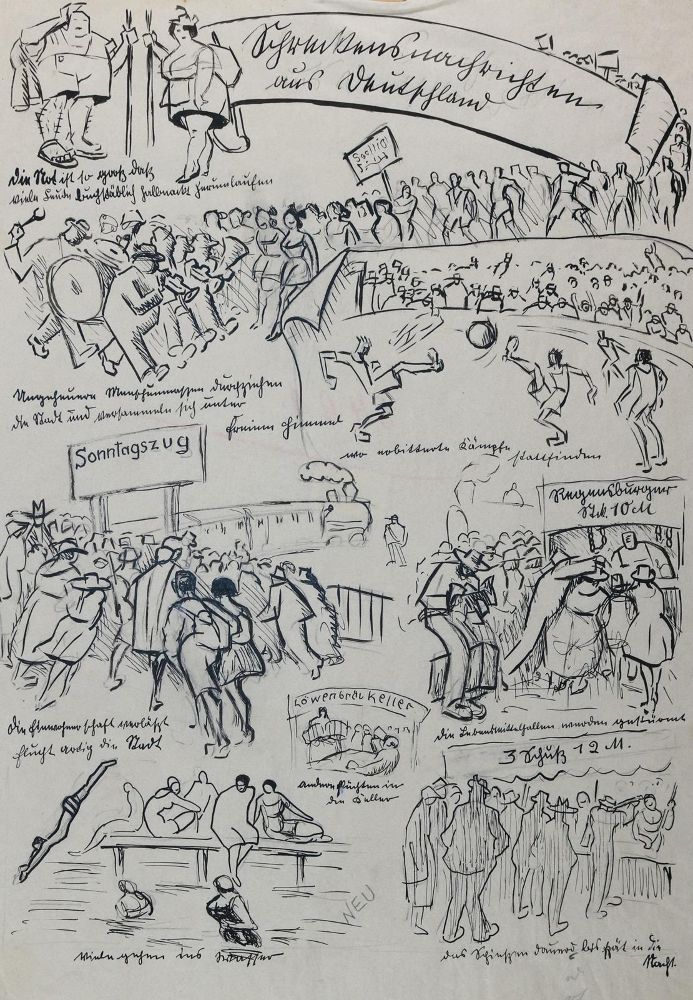 Schreckensnachrichten
aus Deutschland
Die Not ist so groß daß
viele Leute buchstäblich halbnackt herumlaufen
Ungeheuere Menschenmassen durchziehen
die Stadt und versammeln sich unter
freiem Himmel
wo erbitterte Kämpfe stattfinden
Sonntagszug
Regensburger
Stck. 10 M
Die Einwohnerschaft verläßt
fluchtartig die Stadt
Löwenbräu Keller
andere flüchten in
die Keller
die Lebensmittelhallen werden gestürmt
3 Schuß 12 M.
Viele gehen ins Wasser
NEU
das Schießen dauert bis spät in die
Nacht.